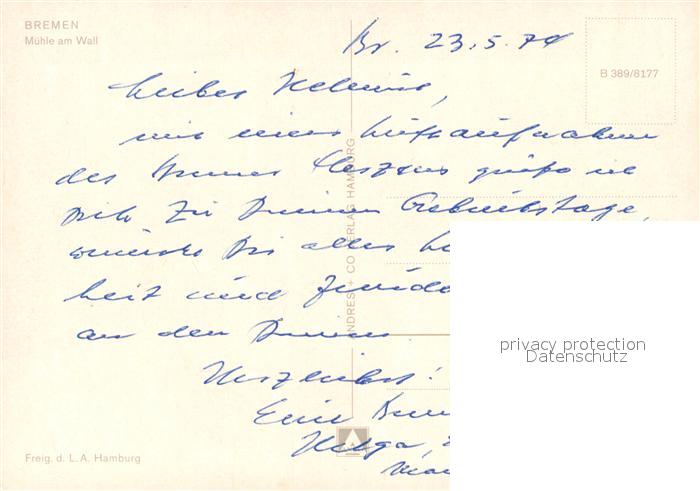 BREMEN
Mühle am Wall
Br. 23.5.74
B 389/8177
Lieber Helmut,
mit einer Luftaufnahme
des Bremer Herzens grüße ich
Dich zu Deinem Geburtstage,
wünsche Dir alles
heit und
an den Deinen.
Herzlichst!
Helga,
ANDRES + CO VERLAG HAMBURG
privacy protection
Datenschutz
Freig. d. L. A. Hamburg